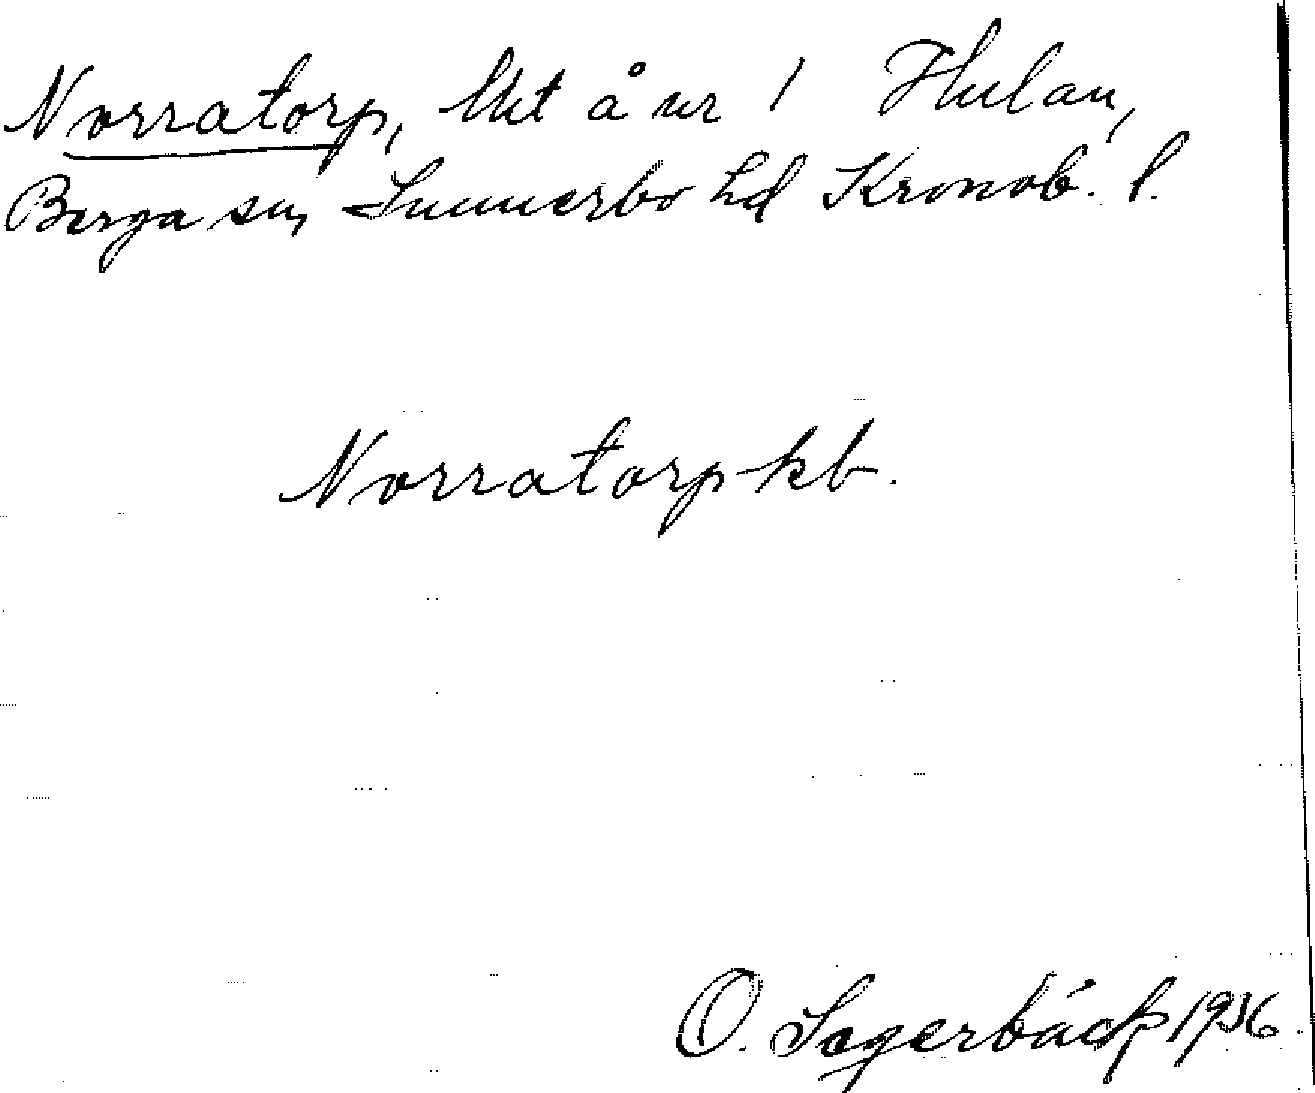 Norratorp, lht å nr 1 Hulan,
Berga sn, Sunnerbo hd Kronob. l.
Norratorp kb.
O. Sagerbäck 1936.